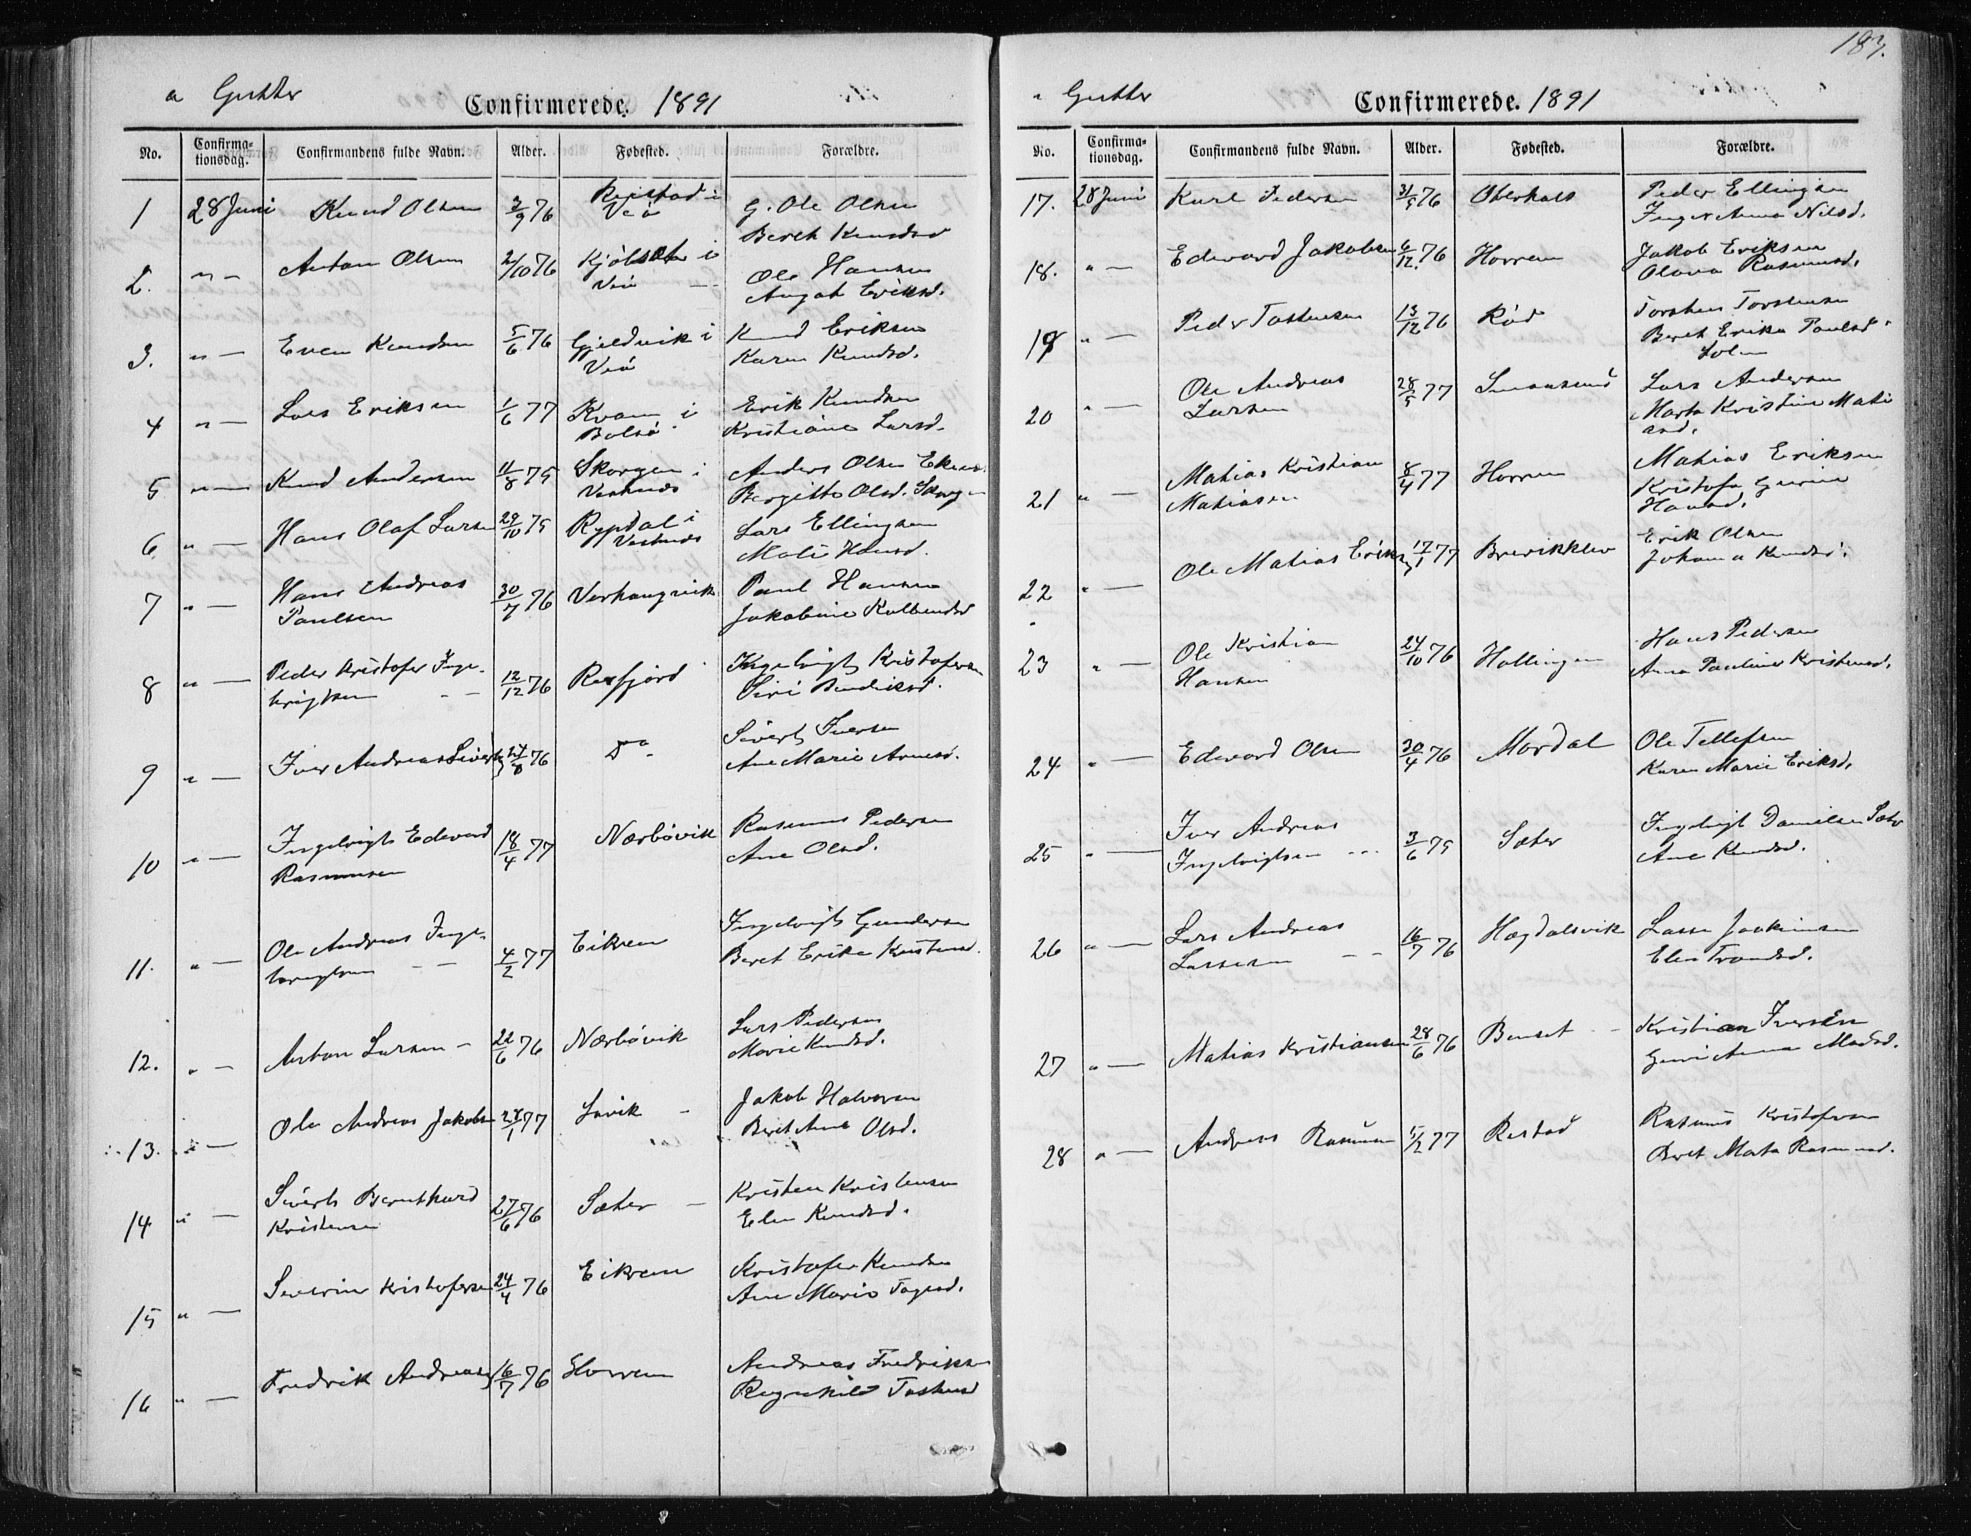 a Gutter
Confirmerede. 1891
No. Confirma-tionsdag. Confirmandens fulde Navn. Alder. Fødested. Forældre.
1 28 Juni Knud Olsen 3/9 76 Veö G. Ole Olsen
Bereth Knudsd
2. " — Anton Olsen 2/10 76 Kjölsæter i Veö Ole Hansen
Eriksd.
3. " — Even Knudsen 5/6 76 Gjeldvik i Veö Knud Eriksen
Karen Knudsd.
4 " — Lars Eriksen 1/6 77 Kvam i Bolsö Erik Knudsen
Kristiane Larsd.
5 " — Knud Andersen 11/8 75 Skorgen i Vestnes Anders Olsen
Bergitte Olsd. Skorgen
6 " — Hans Olaf Larsen 29/10 75 Rypdal i Vestnes Lars Ellingsen
Mali Hansd.
7 " — Hans Andreas Paulsen 30/7 76 Paul Hansen
Jakobine
8 " — Peder Kristofer Inge-brigtsen 12/12 76 Ræsfjord Ingebrigt Kristofersen
Siri Bendiksd.
9 " — Iver Andreas Siverts 76 Do Sivert Iversen
Ane Marie Arnesd.
10 " — Ingebrigt Edvard Rasmusen 18/4 77 Nærbövik Rasmus Pedersen
Ane Olsd.
11. " — Ole Andreas Inge-brigtsen 4/2 77 Eikrem Ingebrigt Gundersen
Beret Erika Kristensd.
12. " — Anton Larsen 22/6 76 Nærbövik Lars Pedersen
Marie Knudsd.
13. " — Ole Andreas Jakobsen 77 Jakob Halvorsen
Beret Ane Olsd.
14 " — Siverts Bernthard Kristensen 27/6 76 Sæter Kristen Kristensen
Elen Knudsd.
15 " — Severin Kristofersen 24/4 76 Eikrem Kristofer Knudsen
Ane Marie
16 " — Fredrik Andreasen 16/7 76 Horrem Andreas Fredriksen
Ragnhild Tostensd
183.
" Gutter
Confirmerede. 1891
No. Confirma-tionsdag. Confirmandens fulde Navn. Alder. Fødested. Forældre.
17. 28 Juni Karl Pedersen 31/5 76 Oterhals Peder Ellingsen
Inger Anna Nilsd.
18. " — Edvard Jakobsen 6/12 76 Horrem Jakob Eriksen
Olava Rasmusd.
19 " — Peder Tostensen 13/12 76 Röd Torsten Torstensen
Beret Erika Paulsd.
20 " — Ole Andreas Larsen 28/5 77 Lars Andersen
Marta Kristine
21 " — Matias Kristian Matiasen 8/4 77 Horrem Matias Eriksen
Kristofa Gurine
Hansd.
22 " — Ole Matias Eriksen 17/1 77 Erik Olsen
Johanna Knudsd.
23 " — Ole Kristian Hansen 24/10 76 Hollingen Hans Pedersen
Anna Pauline Kristensd.
24 " — Edvard Olsen 30/4 76 Mordal Ole Tellefsen
Karen Marie Eriksd.
25 " — Iver Andreas Ingebrigtsen 3/6 75 Sæter Ingebrigt Danielsen Sæter
Ane Knudsd.
26 " — Lars Andreas Larsen 16/7 76 Hægdalsvik Lasse Joakimsen
Elen Trondsd.
27 " — Matias Kristiansen 28/6 76 Benset Kristian Iversen
Guri Anna Madsd.
28 " — Andreas Rasmusen 5/2 77 Restad Rasmus Kristofersen
Beret Marta Rasmusd.